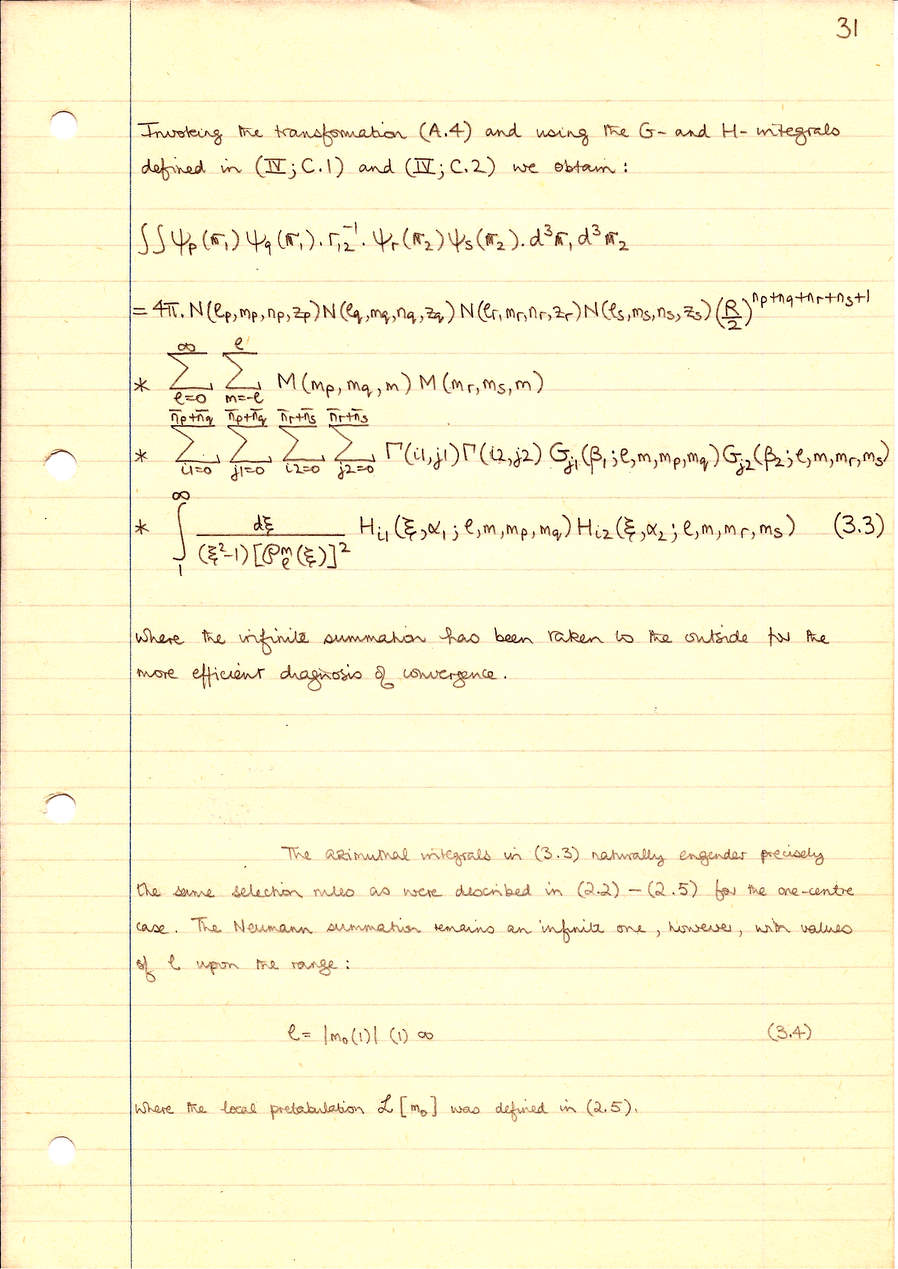 31
Invoking the transformation (A.4) and using the G- and H-integrals
defined in (IV; C.1) and (IV; C.2) we obtain:
∫∫ψp(r̄1)ψq(r̄1).r12⁻¹.ψr(r̄2)ψs(r̄2).d³r̄1 d³r̄2
= 4π.N(ℓp,mp,np,zp)N(ℓq,mq,nq,zq)N(ℓr,mr,nr,zr)N(ℓs,ms,ns,zs)(R/2)^(np+nq+nr+ns+1)
* ∑_{ℓ=0}^{∞} ∑_{m=-ℓ}^{ℓ} M(mp,mq,m)M(mr,ms,m)
* ∑_{i1=0}^{n̄p+n̄q} ∑_{j1=0}^{n̄p+n̄q} ∑_{i2=0}^{n̄r+n̄s} ∑_{j2=0}^{n̄r+n̄s} Γ(i1,j1)Γ(i2,j2)G_{j1}(β1;ℓ,m,mp,mq)G_{j2}(β2;ℓ,m,mr,ms)
* ∫_{1}^{∞} dξ/((ξ²-1)[𝒫_ℓ^m(ξ)]²) H_{i1}(ξ,α1;ℓ,m,mp,mq)H_{i2}(ξ,α2;ℓ,m,mr,ms) (3.3)
where the infinite summation has been taken to the outside for the
more efficient diagnosis of convergence.
The azimuthal integrals in (3.3) naturally engender precisely
the same selection rules as were described in (2.2) – (2.5) for the one-centre
case. The Neumann summation remains an infinite one, however, with values
of ℓ upon the range:
ℓ = |m₀(1)| (1) ∞ (3.4)
where the local pretabulation ℒ[m₀] was defined in (2.5).